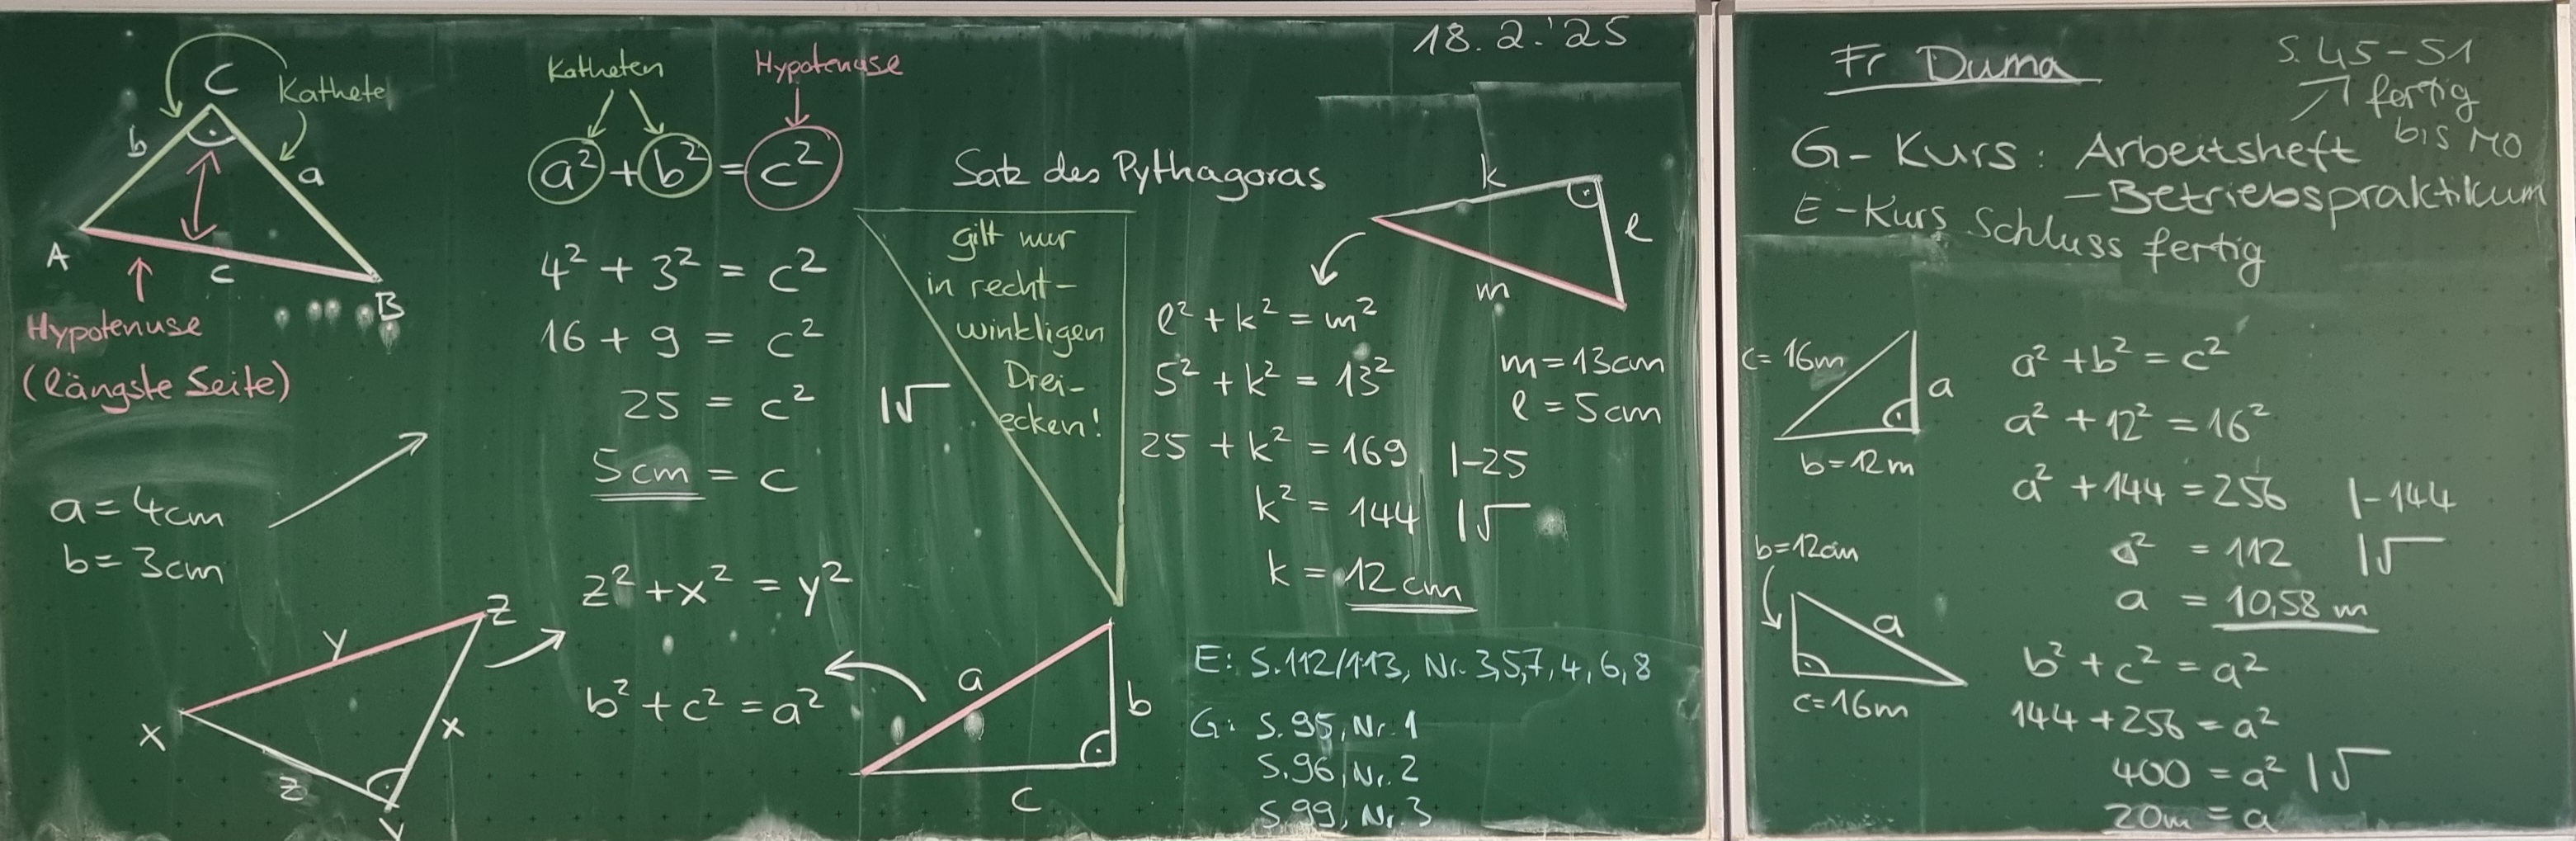 18.2.'25
C
Kathete
b
a
A
c
B
Hypotenuse
(längste Seite)
a = 4cm
b = 3cm
Katheten
Hypotenuse
a² + b² = c²
4² + 3² = c²
16 + 9 = c²
25 = c² |√
5cm = c
y
z
x
x
z
y
z² + x² = y²
b² + c² = a²
Satz des Pythagoras
gilt nur
in recht-
winkligen
Drei-
ecken!
a
b
c
k
l
m
m = 13cm
l = 5cm
l² + k² = m²
5² + k² = 13²
25 + k² = 169 |-25
k² = 144 |√
k = 12 cm
E: S.112/113, Nr. 3,5,7,4,6,8
G: S.95, Nr. 1
S.96, Nr. 2
S.99, Nr. 3
Fr Duma
S. 45-51
fertig
bis MO
G-Kurs: Arbeitsheft
- Betriebspraktikum
E-Kurs Schluss fertig
c = 16m
a
b = 12m
a² + b² = c²
a² + 12² = 16²
a² + 144 = 256 |-144
a² = 112 |√
a = 10,58 m
b=12cm
a
c = 16m
b² + c² = a²
144 + 256 = a²
400 = a² |√
20m = a